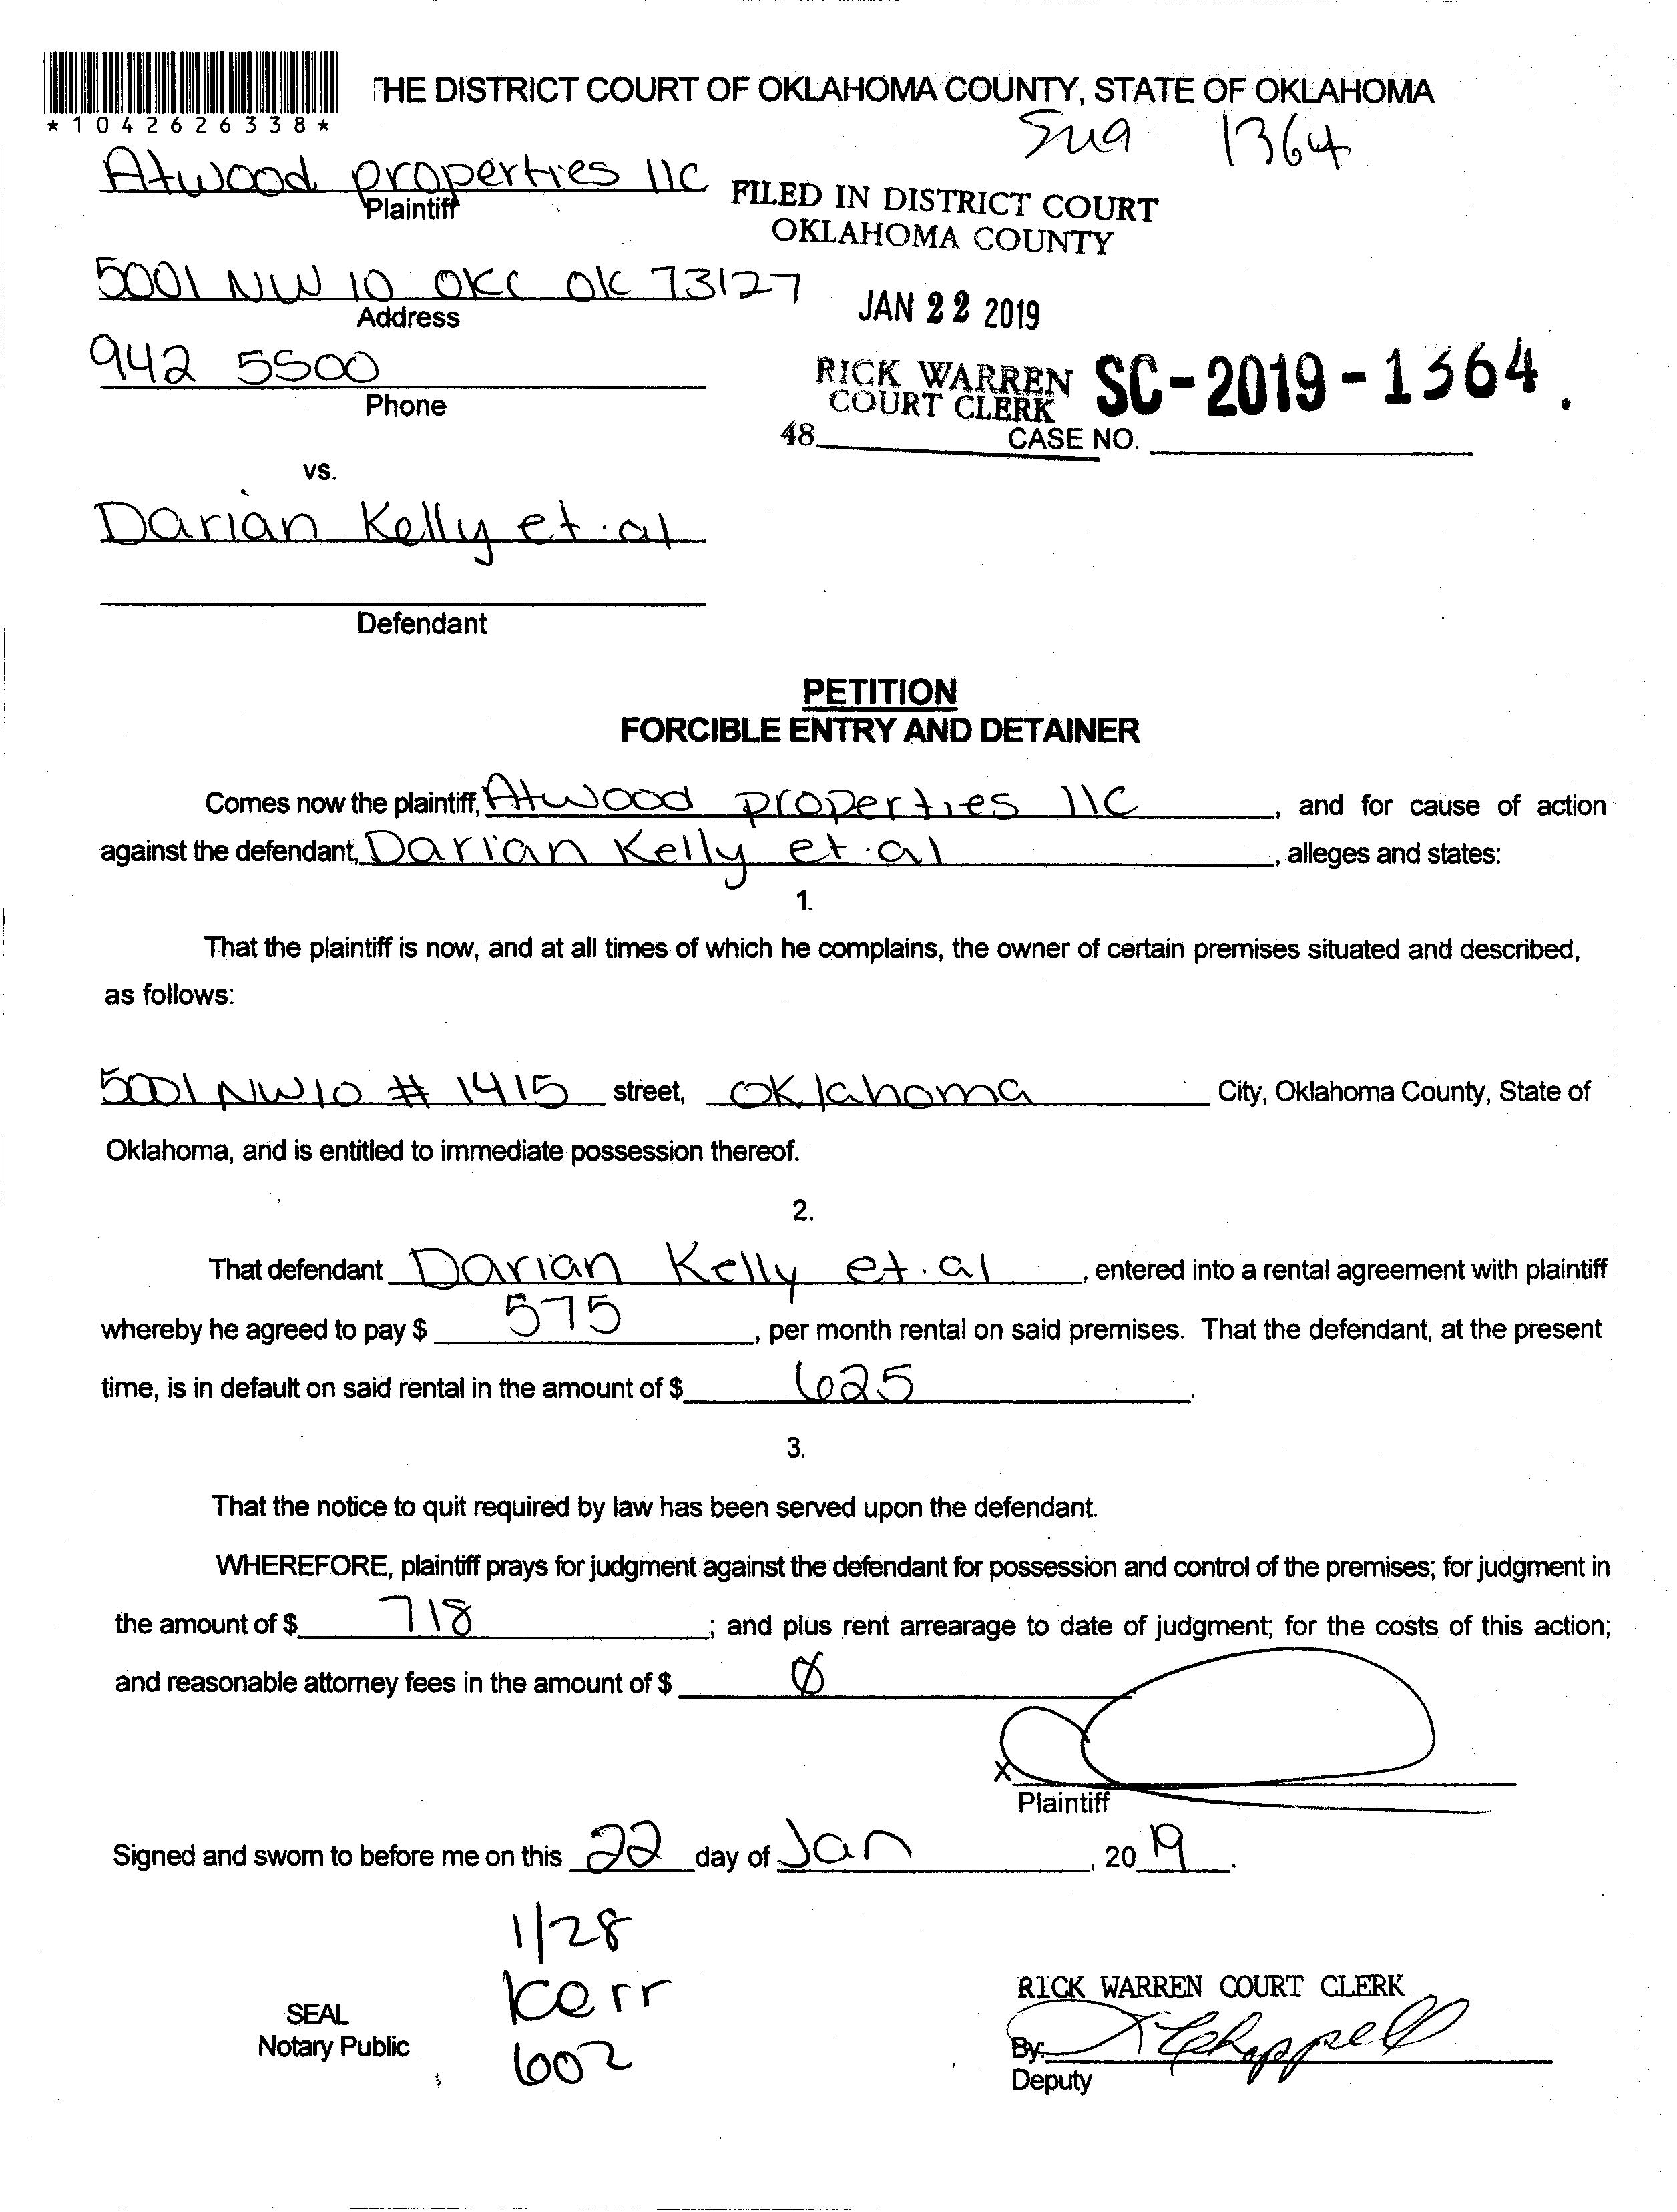 THE DISTRICT COURT OF OKLAHOMA COUNTY, STATE OF OKLAHOMA
*1042626338*
1364
Atwood properties llc
Plaintiff
FILED IN DISTRICT COURT
OKLAHOMA COUNTY
5001 NW 10 OKC OK 73127
Address
JAN 22 2019
942 5500
Phone
RICK WARREN
COURT CLERK
SC-2019-1364.
48
CASE NO.
vs.
Darian Kelly et.al
Defendant
PETITION
FORCIBLE ENTRY AND DETAINER
Comes now the plaintiff, Atwood properties llc, and for cause of action
against the defendant, Darian Kelly et.al, alleges and states:
1.
That the plaintiff is now, and at all times of which he complains, the owner of certain premises situated and described,
as follows:
5001 NW 10 # 1415 street, Oklahoma City, Oklahoma County, State of
Oklahoma, and is entitled to immediate possession thereof.
2.
That defendant Darian Kelly et.al, entered into a rental agreement with plaintiff
whereby he agreed to pay $ 575, per month rental on said premises. That the defendant, at the present
time, is in default on said rental in the amount of $ 625.
3.
That the notice to quit required by law has been served upon the defendant.
WHEREFORE, plaintiff prays for judgment against the defendant for possession and control of the premises; for judgment in
the amount of $ 718; and plus rent arrearage to date of judgment; for the costs of this action;
and reasonable attorney fees in the amount of $ 0
X
Plaintiff
Signed and sworn to before me on this 22 day of Jan, 2019.
1/28
Kerr
602
SEAL
Notary Public
RICK WARREN COURT CLERK
By: Chappell
Deputy